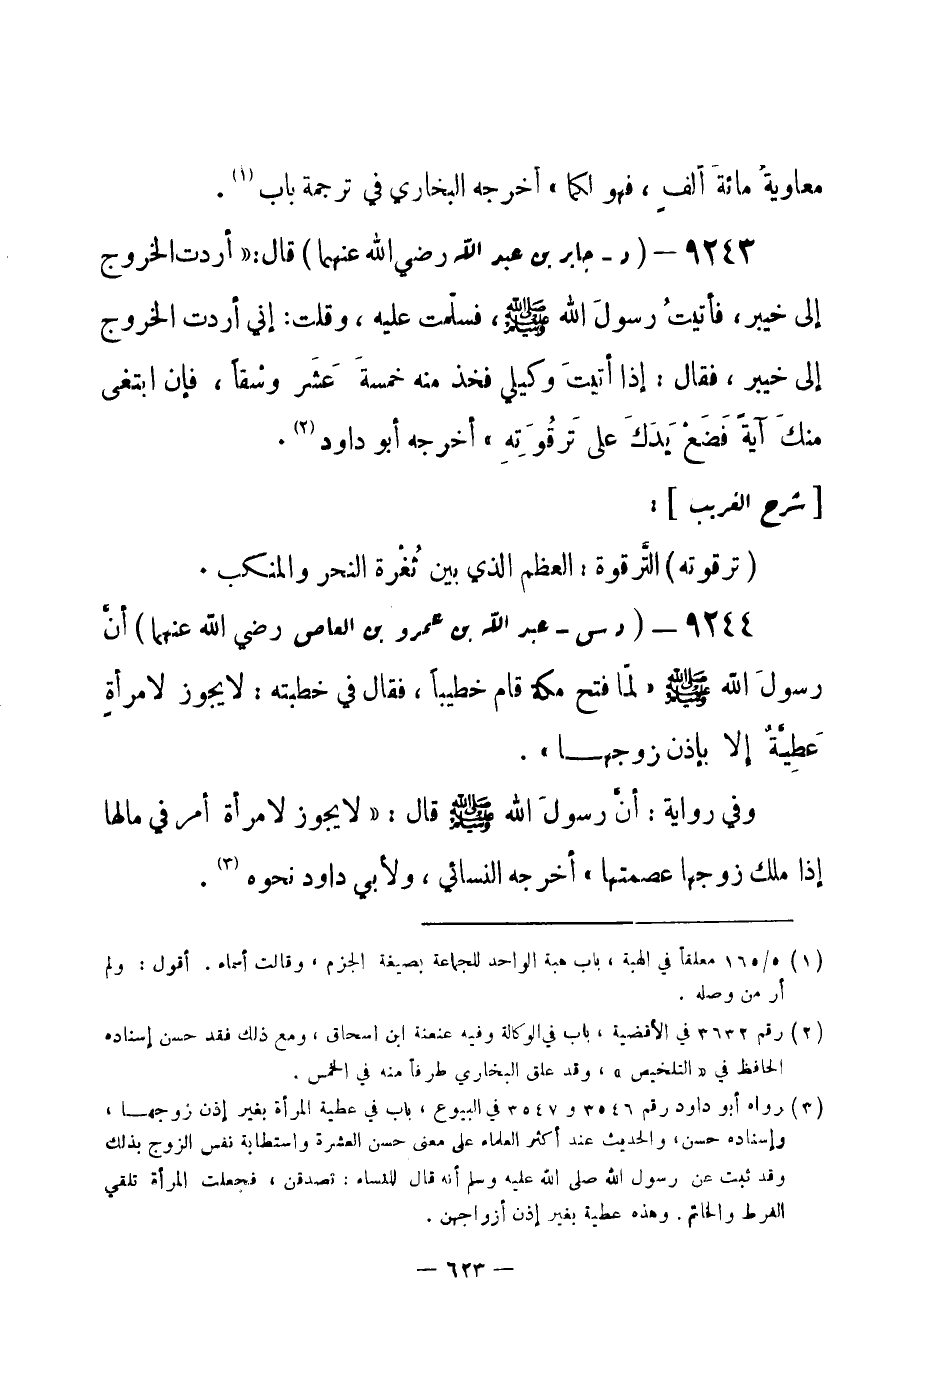 معاويةُ مائةَ ألفٍ ، فهو لكما » أخرجه البخاري في ترجمة باب (١) .
٩٢٤٣ – ( د - جابر بن عبد الله رضي الله عنهما ) قال: « أردت الخروج
إلى خيبر ، فأتيتُ رسولَ الله ﷺ ، فسلّمت عليه ، وقلت: إني أردت الخروج
إلى خيبر ، فقال : إذا أتيتَ وكيلي فخذ منه خمسةَ عَشَر وسْقاً ، فإن ابتغى
منكَ آيةً فَضَعْ يَدَكَ على تَرقُوَتِهِ » أخرجه أبو داود (٢) .
[ شرح الغريب ] :
( ترقوته ) التَّرقوة : العظم الذي بين ثُغْرة النحر والمنكب .
٩٢٤٤ – ( د س - عبد الله بن عمرو بن العاص رضي الله عنهما ) أنَّ
رسولَ الله ﷺ « لمّا فتح مكة قام خطيباً ، فقال في خطبته : لا يجوز لامرأةٍ
عَطِيَّةٌ إلا بإذن زوجهـــا » .
وفي رواية : أنَّ رسولَ الله ﷺ قال : « لا يجوز لامرأة أمر في مالها
إذا ملك زوجها عصمتها » أخرجه النسائي ، ولأبي داود نحوه (٣) .
(١) ١٦٥/٥ معلقاً في الهبة ، باب هبة الواحد للجماعة بصيغة الجزم ، وقالت أسماء . أقول : ولم
أر من وصله .
(٢) رقم ٣٦٣٢ في الأقضية ، باب في الوكالة وفيه عنعنة ابن اسحاق ، ومع ذلك فقد حسن إسناده
الحافظ في « التلخيص » ، وقد علق البخاري طرفاً منه في الخمس .
(٣) رواه أبو داود رقم ٣٥٤٦ و ٣٥٤٧ في البيوع ، باب في عطية المرأة بغير إذن زوجهـــا ،
وإسناده حسن، والحديث عند أكثر العلماء على معنى حسن العشرة واستطابة نفس الزوج بذلك
وقد ثبت عن رسول الله صلى الله عليه وسلم أنه قال للنساء : تصدقن ، فجعلت المرأة تلقي
القرط والخاتم . وهذه عطية بغير إذن أزواجهن .
– ٦٢٣ –